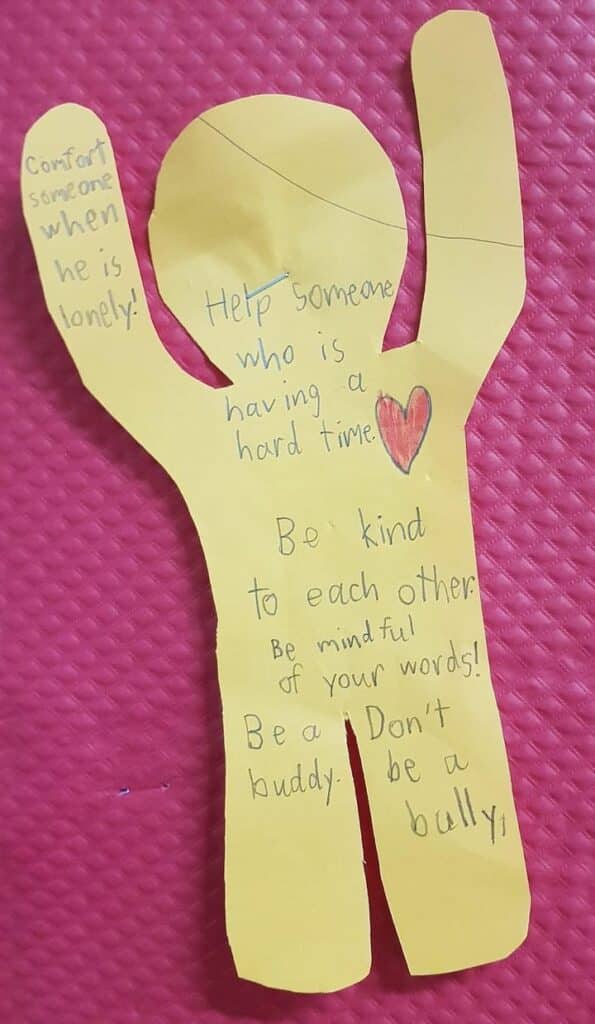 Comfort
someone
when
he is
lonely!
Help someone
who is
having a
hard time.
Be kind
to each other.
Be mindful
of your words!
Be a
buddy.
Don't
be a
bully,